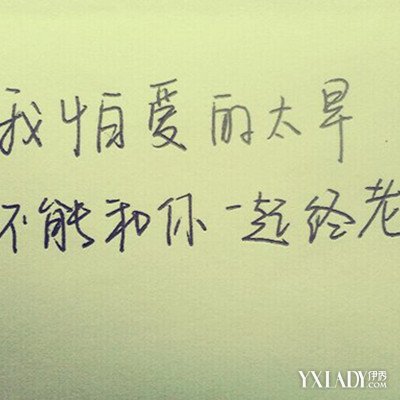 我怕爱的太早
不能和你一起终老
YXLADY伊秀
.COM